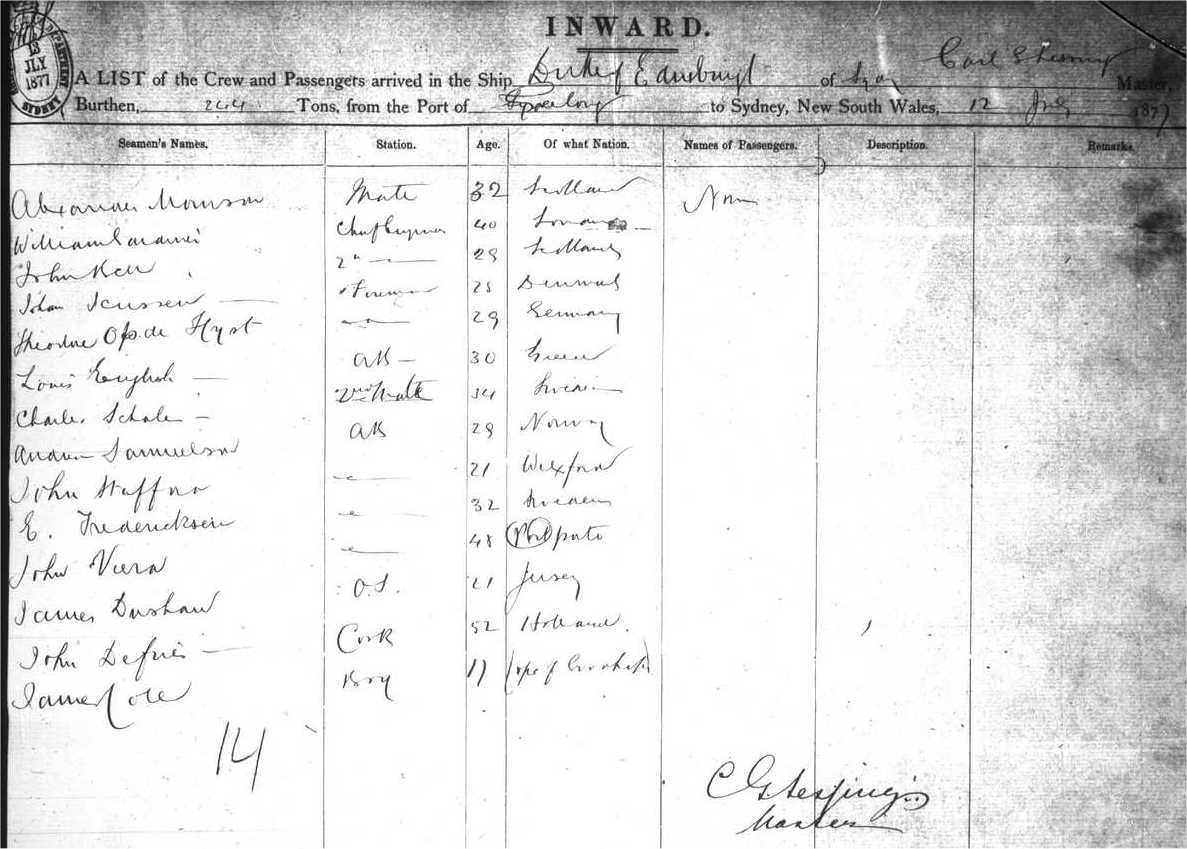 INWARD.
13
JLY
1877
SYDNEY
A LIST of the Crew and Passengers arrived in the Ship Duke of Edinburgh of Master,
Burthen, 244 Tons, from the Port of to Sydney, New South Wales, 12 July 1877
Seamen's Names. Station. Age. Of what Nation. Names of Passengers. Description. Remarks.
Alexander Manson Mate 32 Scotland Non
William Gardiner 40
John Kerr 2" 29 Scotland
Johan Jenssen Fireman 25 Denmark
Theodore Op de Hyst 29 Germany
Louis English AB 30 Greece
Charles Schale 2nd Mate 34 Sweden
Andrew Samuelson AB 29 Norway
John Stafford 21 Wexford
E. Fredericksen 32 Sweden
John Viera 48
James Dushaw O.S. 21 Jersey
John Defries Cook 52 Holland.
James Cole Boy 17 Cape of Good Hope
14
Master